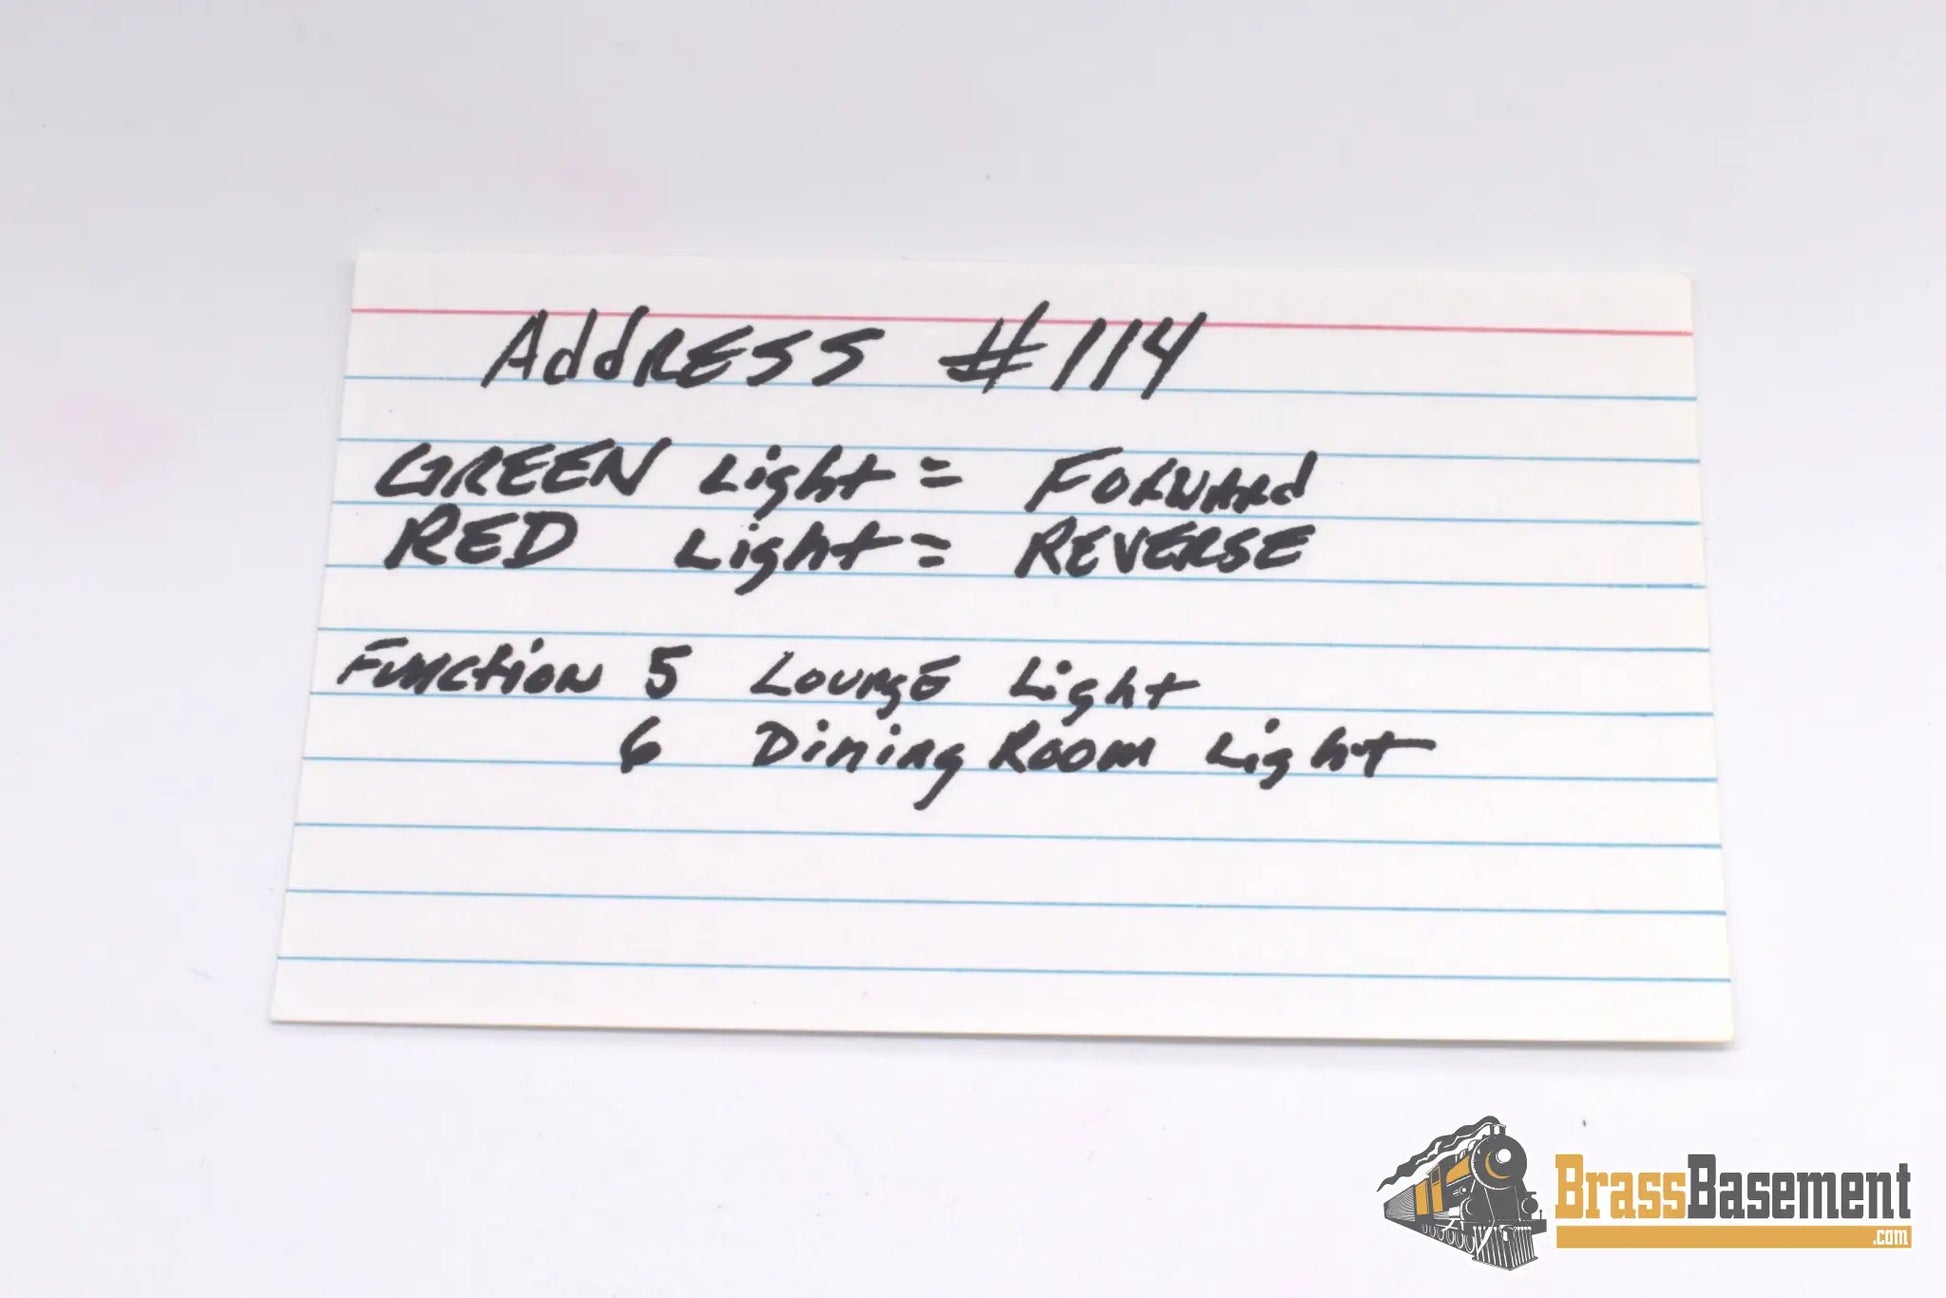 Address #114
GREEN Light = Forward
RED Light = REVERSE
Function 5 Lounge Light
6 Dining Room Light
BrassBasement
.com